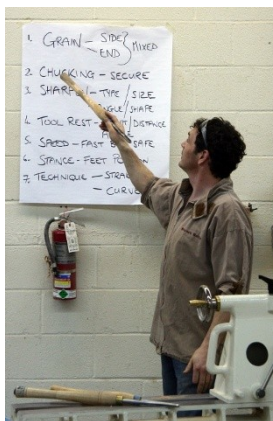 1. GRAIN - SIDE } MIXED
END
2. CHUCKING - SECURE
3. SHARP - TYPE / SIZE
ANGLE / SHAPE
4. TOOL REST - / DISTANCE
5. SPEED - FAST SAFE
6. STANCE - FEET
7. TECHNIQUE -
- CURV